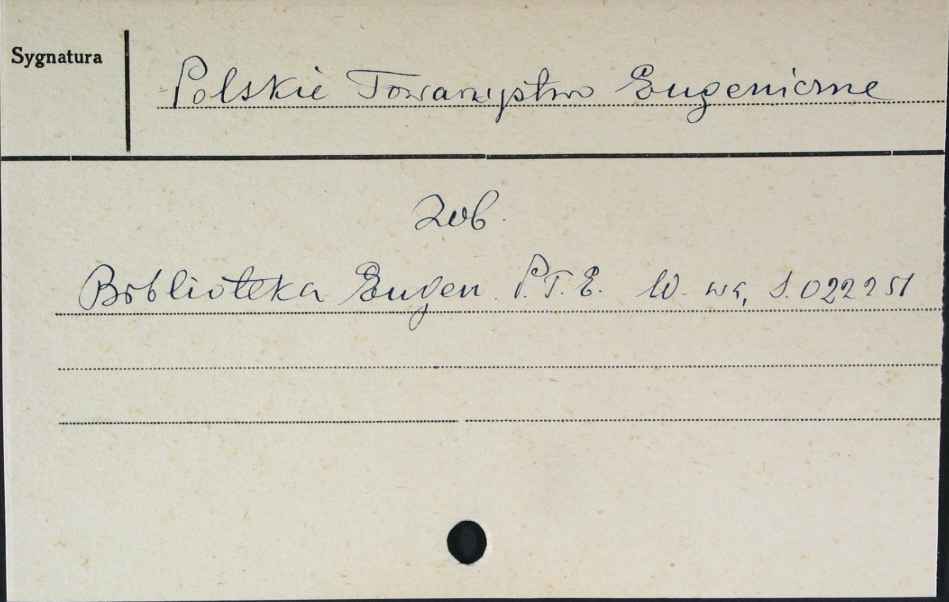 Sygnatura
Polskie Towarzystwo Eugeniczne
Zob.
Biblioteka Eugen. P.T.E. W-wa, S.022251